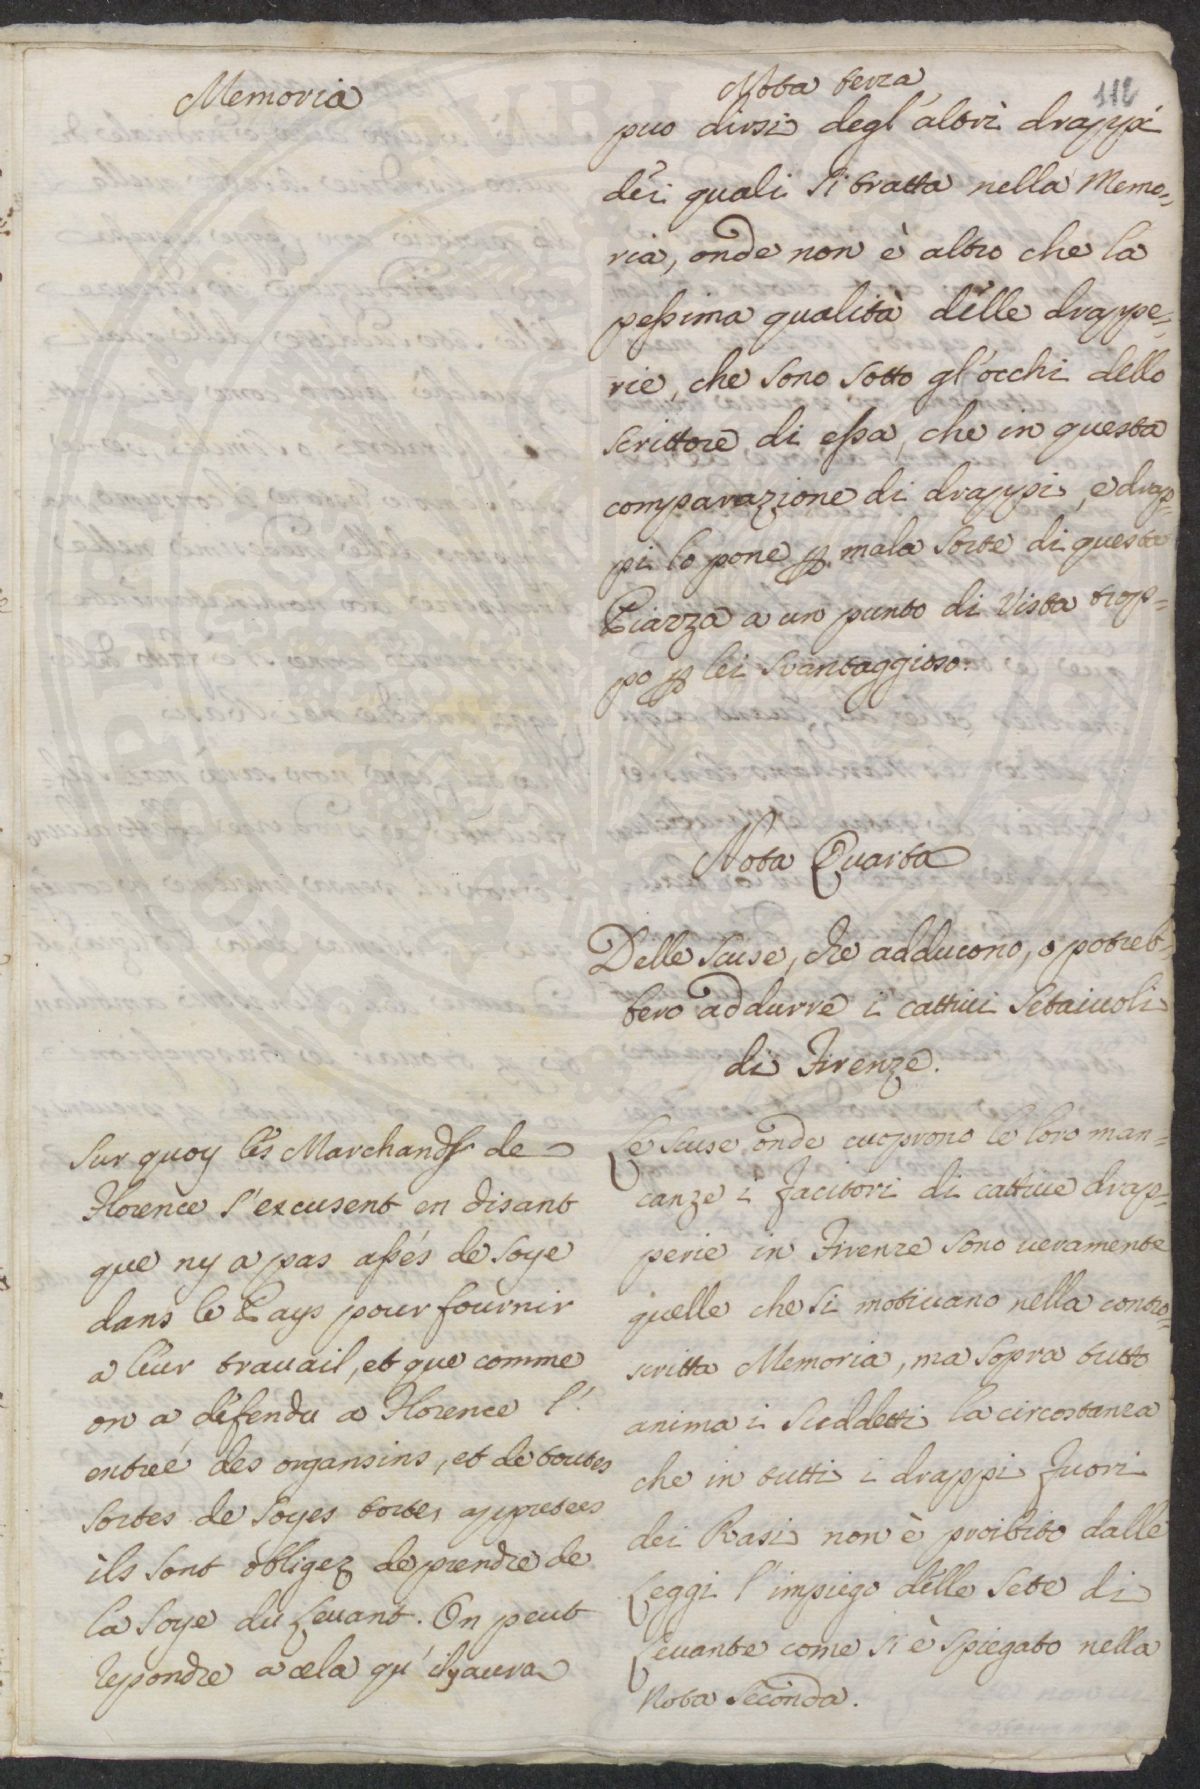 Memoria
Sur quoy les Marchands de
Florence s'excusent en disant
que ny a pas assés de Soye
dans le Pays pour fournir
a leur travail, et que comme
on a défendu a Florence l'
entreé des organsins, et de toutes
Sortes de Soyes tortes appretees
ils sont obligez de prendre de
la Soye du Levant. On peut
repondre a cela qu'il y aura
Nota terza
112
puo dirsi degl'altri drappi
dei quali si tratta nella Memo=
ria, onde non è altro che la
pessima qualità delle drappe=
rie, che sono sotto gl'occhi dello
scrittore di essa, che in questa
comparazione di drappi, e drap=
pi lo pone p mala sorte di questa
Piazza a un punto di vista trop=
po p lei svantaggioso.
Nota Quarta
Delle Scuse, che adducono, o potreb=
bero addurre i cattivi Setaiuoli
di Firenze.
Le Scuse onde cuoprono le loro man=
canze i facitori di cattive drap=
perie in Firenze sono veramente
quelle che si motivano nella contro=
scritta Memoria, ma sopra tutto
anima i Suddetti la circostanza
che in tutti i drappi fuori
dei Rasi non è proibito dalle
Leggi l'impiego delle Sete di
Levante come si è spiegato nella
Nota Seconda.